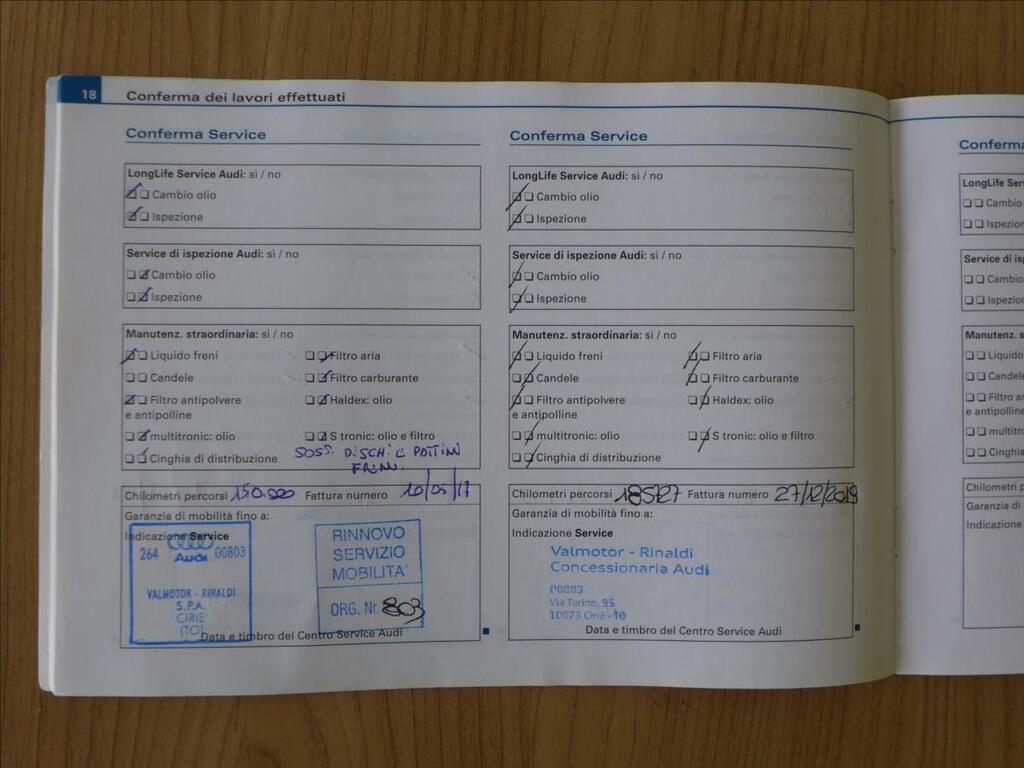 18 Conferma dei lavori effettuati
Conferma Service
LongLife Service Audi: sì / no
Cambio olio
Ispezione
Service di ispezione Audi: sì / no
Cambio olio
Ispezione
Manutenz. straordinaria: sì / no
Liquido freni Filtro aria
Candele Filtro carburante
Filtro antipolvere Haldex: olio
e antipolline
multitronic: olio S tronic: olio e filtro
Cinghia di distribuzione SOSS. DISCHI E PATTINI
FRENI.
Chilometri percorsi 150.500 Fattura numero 10/05/17
Garanzia di mobilità fino a:
Indicazione Service
264 Audi 00803
VALMOTOR - RINALDI
S.P.A.
CIRIE'
(TO)
RINNOVO
SERVIZIO
MOBILITA'
ORG. Nr. 803
Data e timbro del Centro Service Audi
Conferma Service
LongLife Service Audi: sì / no
Cambio olio
Ispezione
Service di ispezione Audi: sì / no
Cambio olio
Ispezione
Manutenz. straordinaria: sì / no
Liquido freni Filtro aria
Candele Filtro carburante
Filtro antipolvere Haldex: olio
e antipolline
multitronic: olio S tronic: olio e filtro
Cinghia di distribuzione
Chilometri percorsi 185127 Fattura numero 27/12/2019
Garanzia di mobilità fino a:
Indicazione Service
Valmotor - Rinaldi
Concessionaria Audi
00803
Via Torino, 95
10073 Ciriè - TO
Data e timbro del Centro Service Audi
Conferma
LongLife Serv
Cambio
Ispezion
Service di isp
Cambio
Ispezion
Manutenz. s
Liquido
Candele
Filtro an
e antipolline
multitro
Cinghia
Chilometri p
Garanzia di
Indicazione